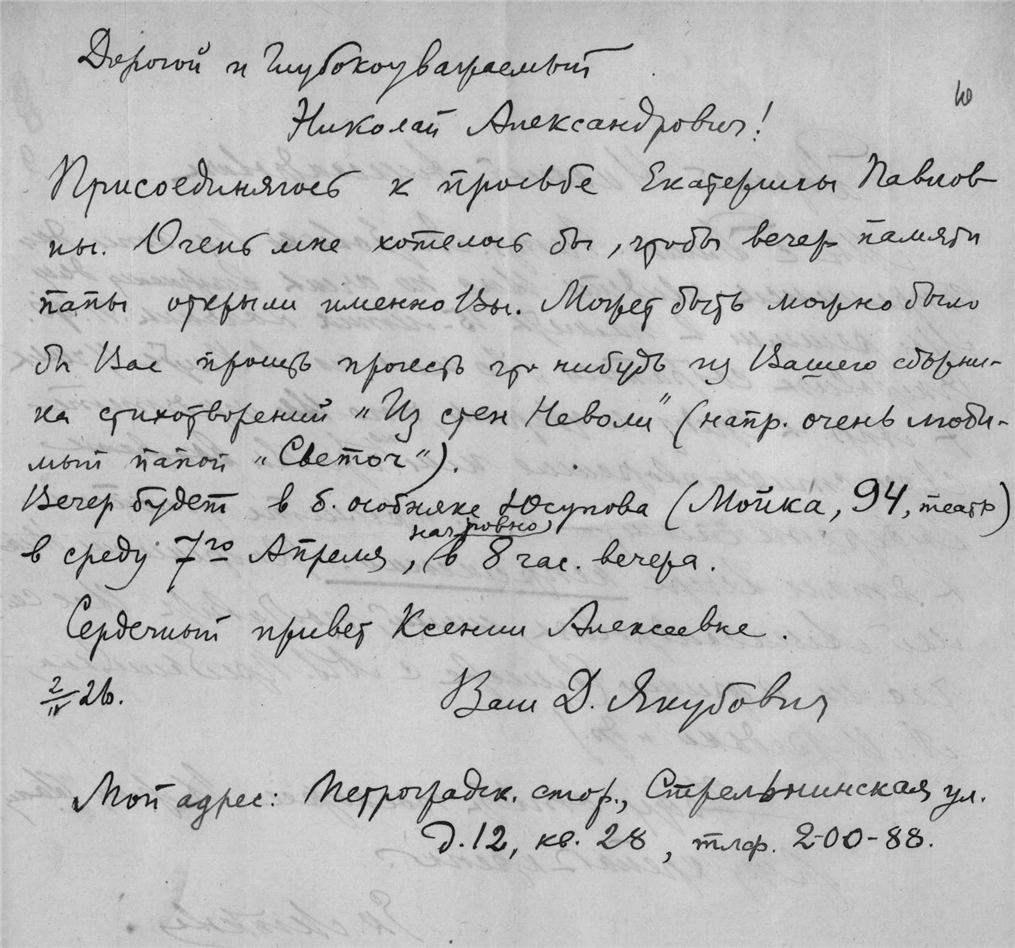 Дорогой и глубокоуважаемый
10
Николай Александрович!
Присоединяюсь к просьбе Екатерины Павлов-
ны. Очень мне хотелось бы, чтобы вечер памяти
папы открыли именно Вы. Может быть можно было
бы Вас просить прочесть что нибудь из Вашего сборни-
ка стихотворений "Из стен Неволи" (напр. очень люби-
мый папой "Светоч").
Вечер будет в б. особняке Юсупова (Мойка, 94, театр)
нач. ровно
в среду 7го Апреля, (в 8 час. вечера.
Сердечный привет Ксении Алексеевне.
2/IV 26. Ваш Д. Якубович
Мой адрес: Петроградск. стор., Стрельнинская ул.
д. 12, кв. 28, тлф. 2-00-88.